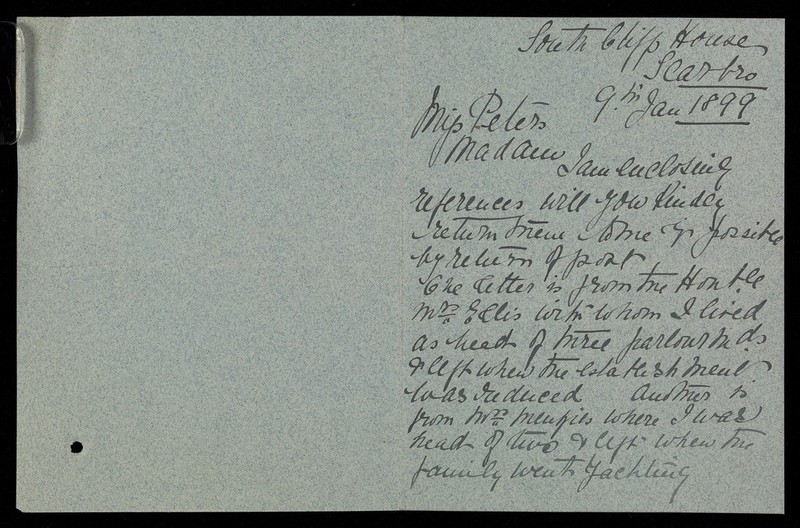 South Cliff House
Scarbro
9th Jan 1899
Miss Peters
Madam I am enclosing
references will you kindly
return them to me if possible
by return of post
One letter is from the Hon ble
Mrs Ellis with whom I lived
as head of three parlourm ds
& left when the establishment
was reduced another is
from Mrs Menzies where I was
head of two & left when the
family went yachting